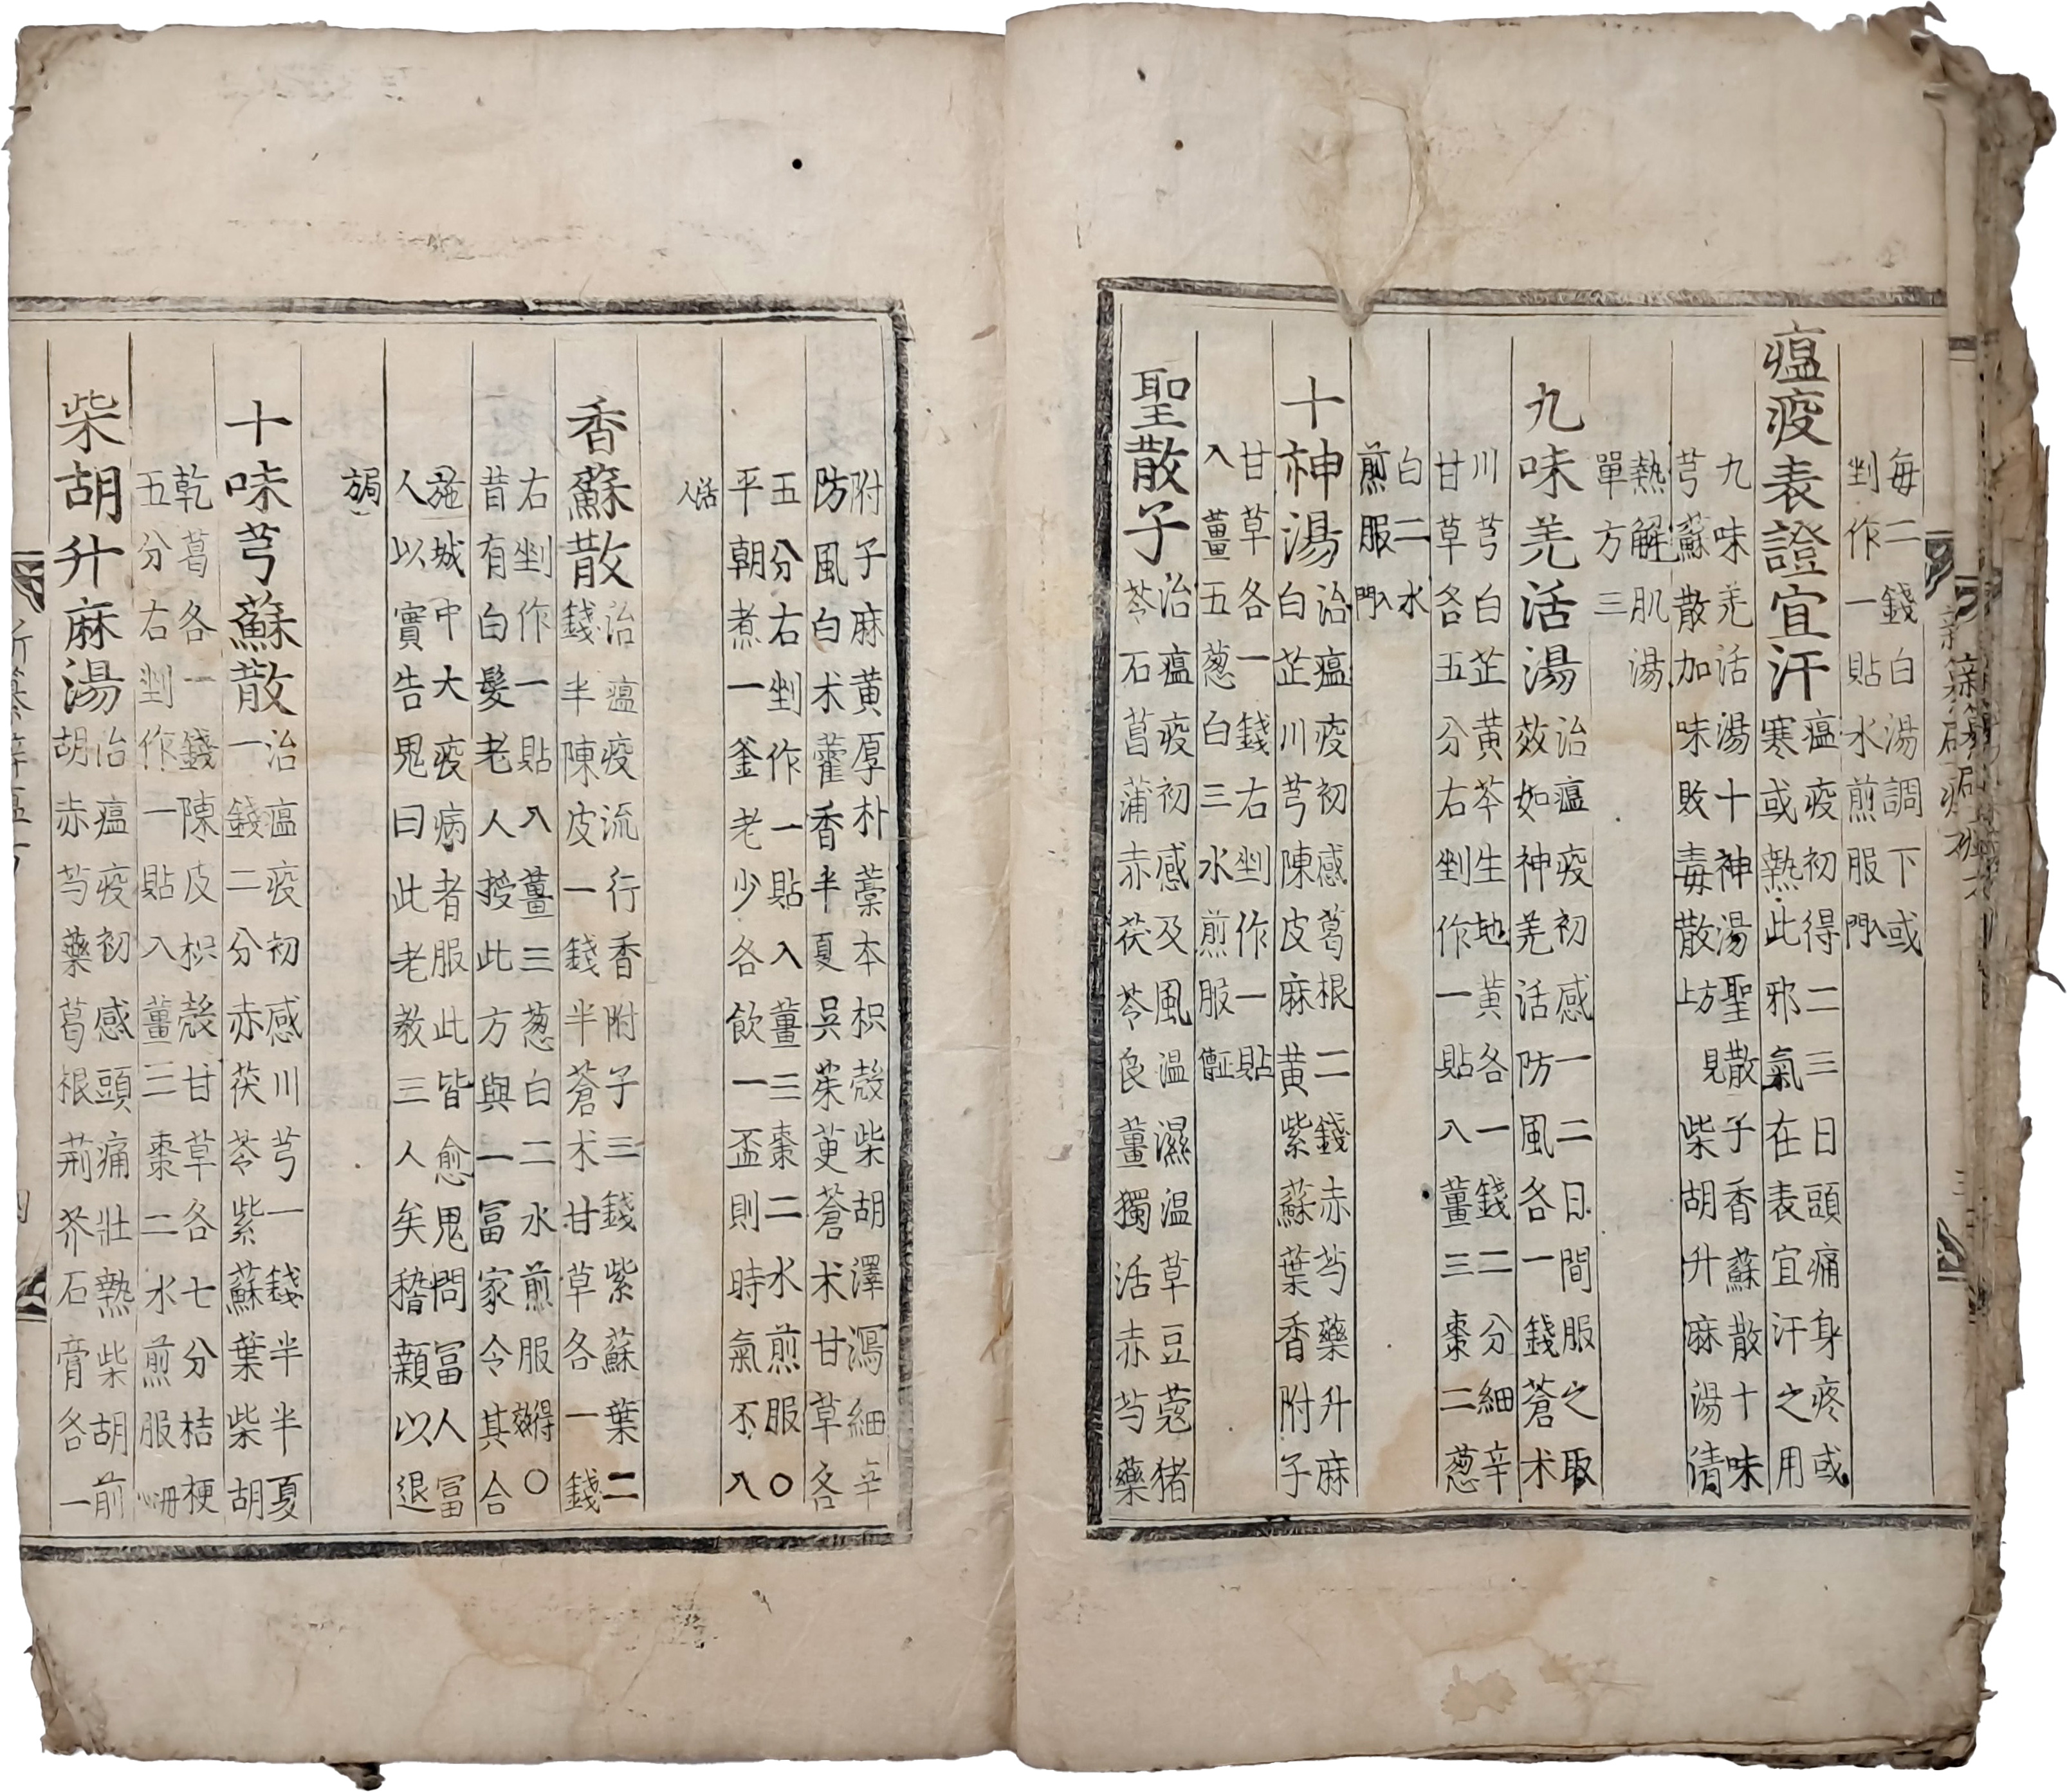 每二錢白湯調下或
剉作一貼水煎服門入
瘟疫表證宜汗
瘟疫初得二三日頭痛身疼或
寒或熱此邪氣在表宜汗之用
九味羌活湯十神湯聖散子香蘇散十味
芎蘇散加味敗毒散方見上柴胡升麻湯清
熱解肌湯
單方三
九味羌活湯
治瘟疫初感一二日間服之取
效如神羌活防風各一錢蒼朮
川芎白芷黃芩生地黃各一錢二分細辛
甘草各五分右剉作一貼入薑三棗二葱
白二水
煎服入門
十神湯
治瘟疫初感葛根二錢赤芍藥升麻
白芷川芎陳皮麻黃紫蘇葉香附子
甘草各一錢右剉作一貼
入薑五葱白三水煎服
聖散子
治瘟疫初感及風温濕温草豆蔻猪
苓石菖蒲赤茯苓良薑獨活赤芍藥
附子麻黃厚朴藁本枳殼柴胡澤瀉細辛
防風白朮藿香半夏吳茱萸蒼朮甘草各
五分右剉作一貼入薑三棗二水煎服○
平朝煮一釜老少各飲一盃則時氣不入
活人
香蘇散
治瘟疫流行香附子三錢紫蘇葉二
錢半陳皮一錢半蒼朮甘草各一錢
右剉作一貼入薑三葱白二水煎服得效○
昔有白髮老人授此方與一冨家令其合
施城中大疫病者服此皆愈鬼問冨人冨
人以實告鬼曰此老教三人矣稽顙以退
局方
十味芎蘇散
治瘟疫初感川芎一錢半半夏
一錢二分赤茯苓紫蘇葉柴胡
乾葛各一錢陳皮枳殼甘草各七分桔梗
五分右剉作一貼入薑三棗二水煎服
柴胡升麻湯
治瘟疫初感頭痛壯熱柴胡前
胡赤芍藥葛根荊芥石膏各一